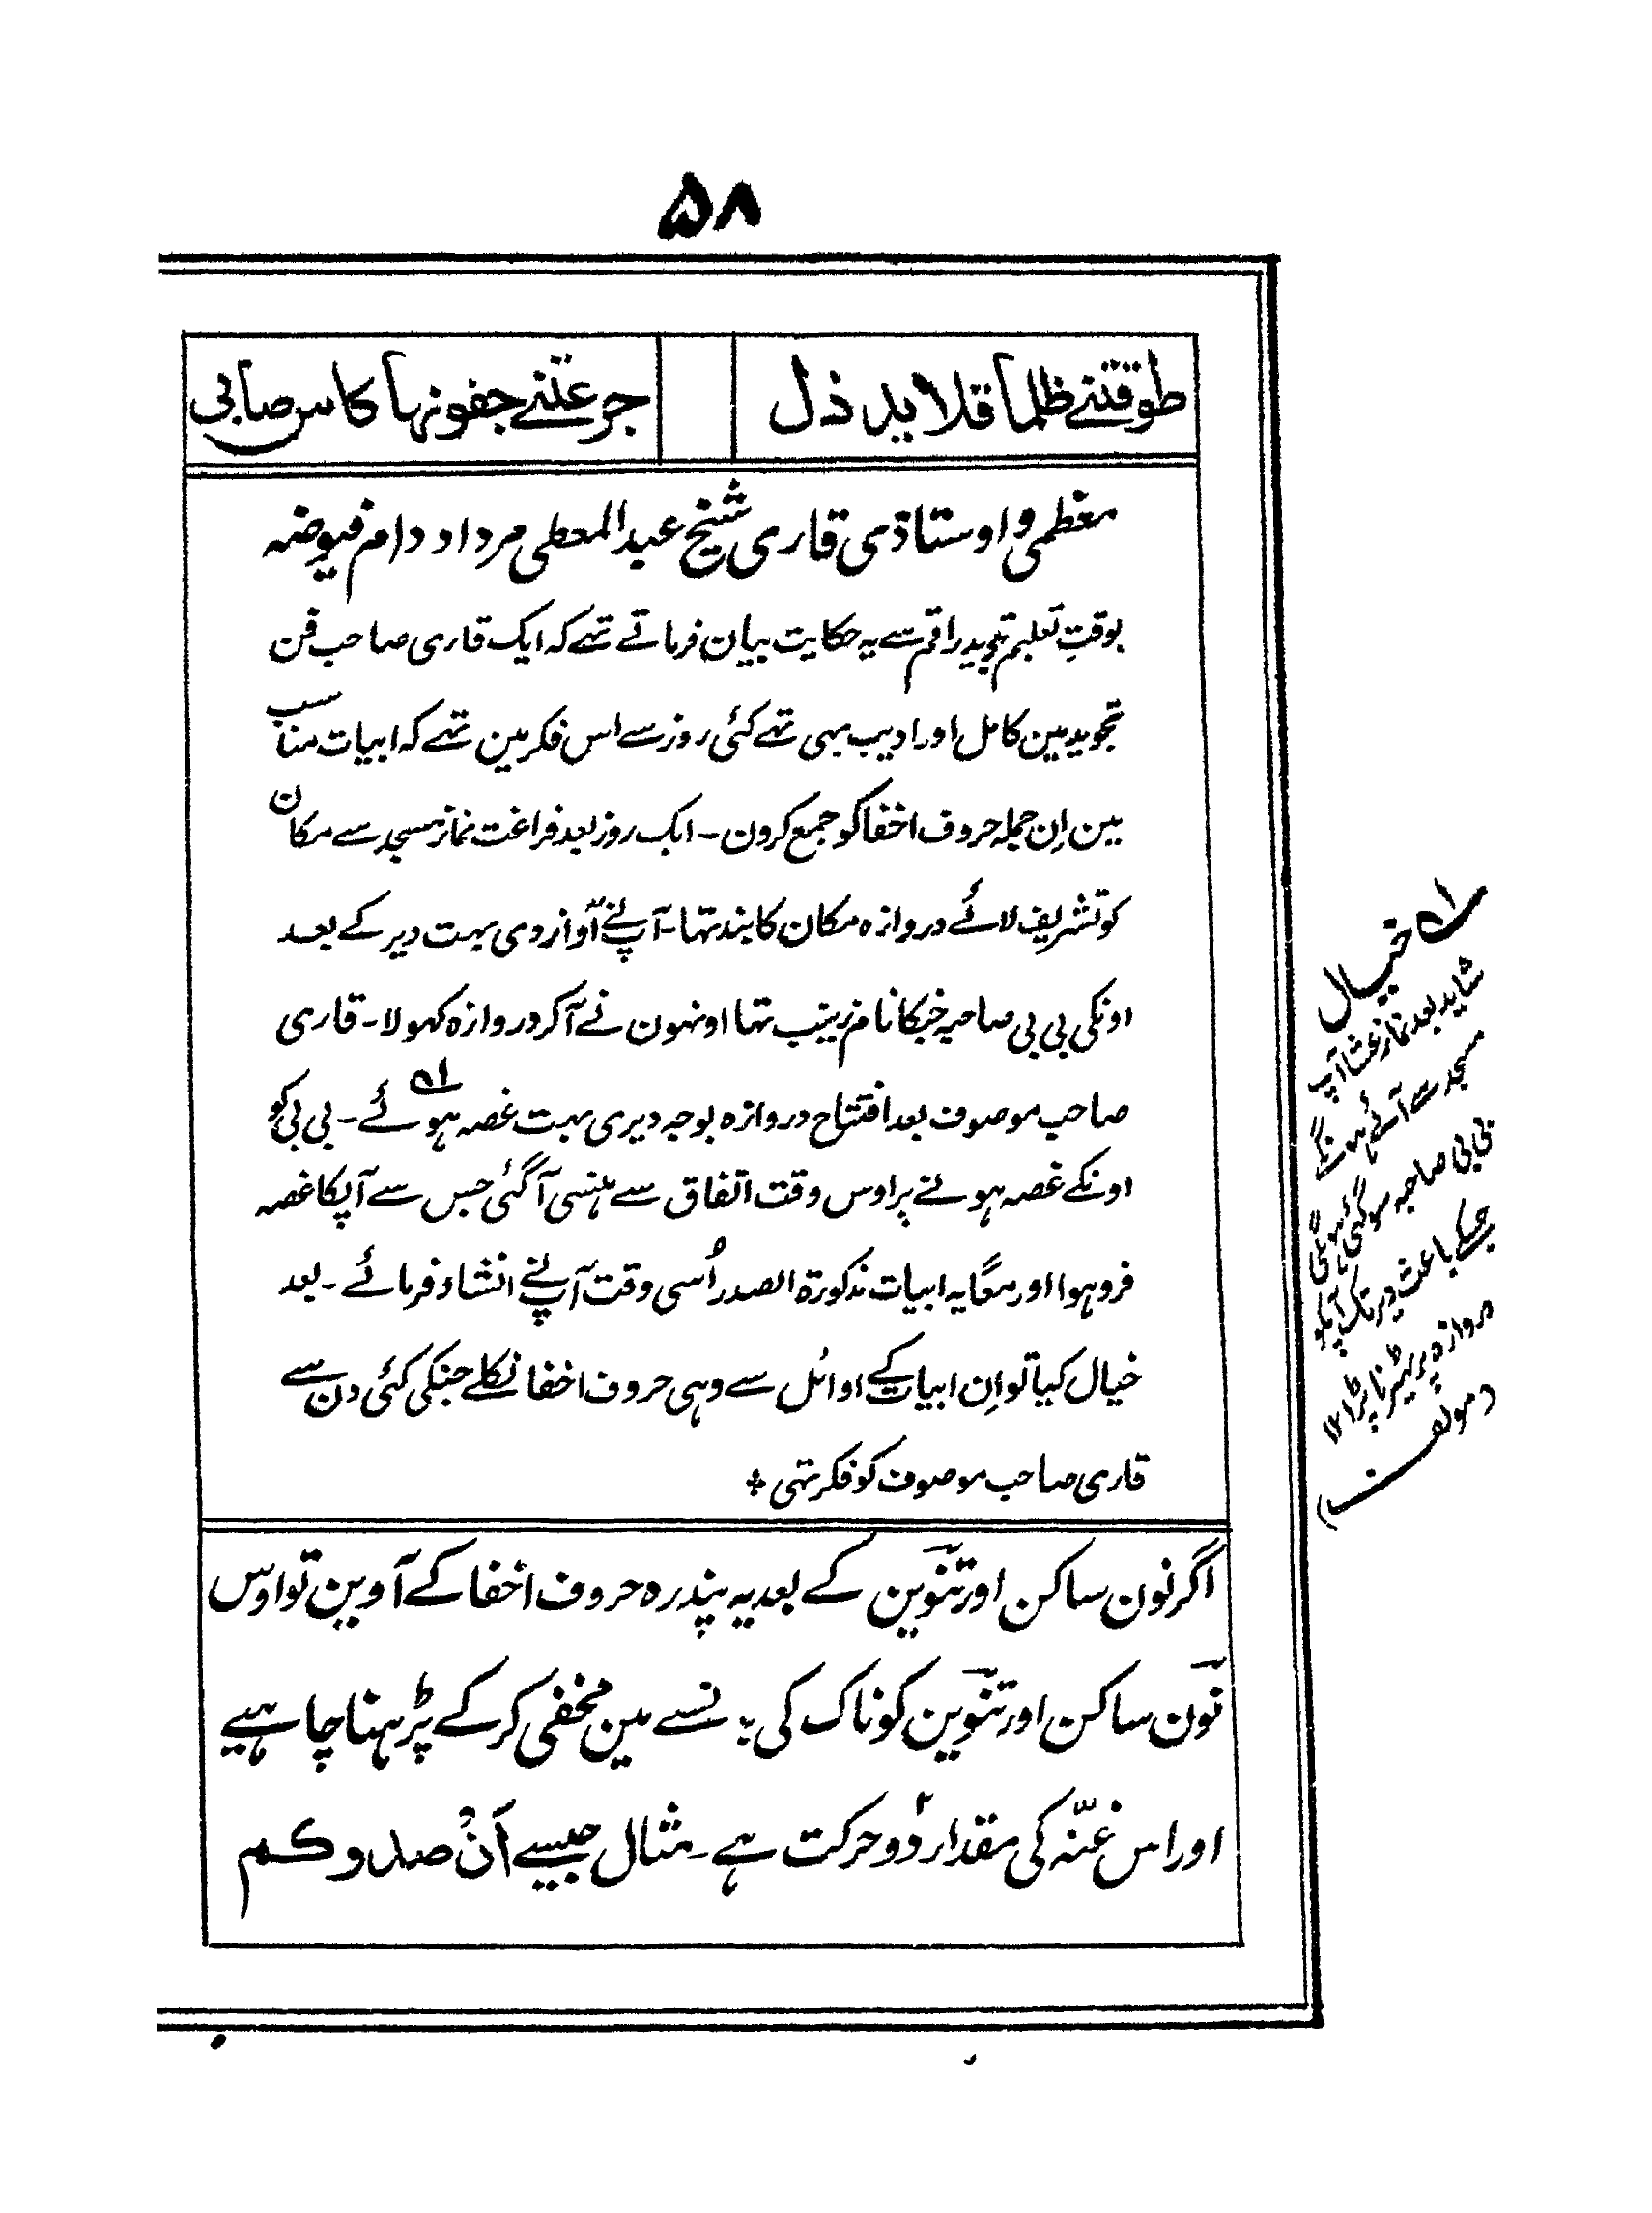 ۵۸
طوقتنے ظلماً قلاید ذل
جرعتنے جفونہا کاس صابی
معظمی و اوستاذی قاری شیخ عبد المعطی مرداد دام فیوضہ
بوقتِ تعلیم تجوید راقم سے یہ حکایت بیان فرماتے تہے کہ ایک قاری صاحب فن
تجوید مین کامل اور ادیب بہی تہے کئی روز سے اس فکر مین تہے کہ ابیات مناسب
مین اِن جملہ حروف اخفا کو جمع کرون ۔ ایک روز بعد فراغت نماز مسجد سے مکان
کو تشریف لائے دروازہ مکان کا بند تہا ۔ آپنے آواز دی بہت دیر کے بعد
اونکی بی بی صاحبہ جنکا نام زینب تہا اونہون نے آکر دروازہ کہولا ۔ قاری
صاحب موصوف بعد افتتاح دروازہ بوجہ دیری بہت غصہ ہوئے ؎۱ ۔ بی بی کو
اونکے غصہ ہونے پر اوس وقت اتفاق سے ہنسی آگئی جس سے آپکا غصہ
فرو ہوا اور معًا یہ ابیات مذکورۃ الصدر اُسی وقت آپنے انشاد فرمائے ۔ بعد
خیال کیا تو اِن ابیات کے اوائل سے وہی حروف اخفا نکلے جنکی کئی دن سے
قاری صاحب موصوف کو فکر تہی ٭
اگر نون ساکن اور تنوین کے بعد یہ پندرہ حروف اخفا کے آوین تو اوس
نون ساکن اور تنوین کو ناک کی بانسے مین مخفی کر کے پڑہنا چاہیے
اور اس غنّہ کی مقدار دو ۲ حرکت ہے ۔ مثال جیسے اَنْ صدوکم
؎۱ خیال
شاید بعد نماز عشا آپ
مسجد سے آئے ہونگے
بی بی صاحبہ سو گئی ہونگی
جسکے باعث دیر تک آپکو
دروازہ پر ٹہیرنا پڑا ۱۲
(مولف)